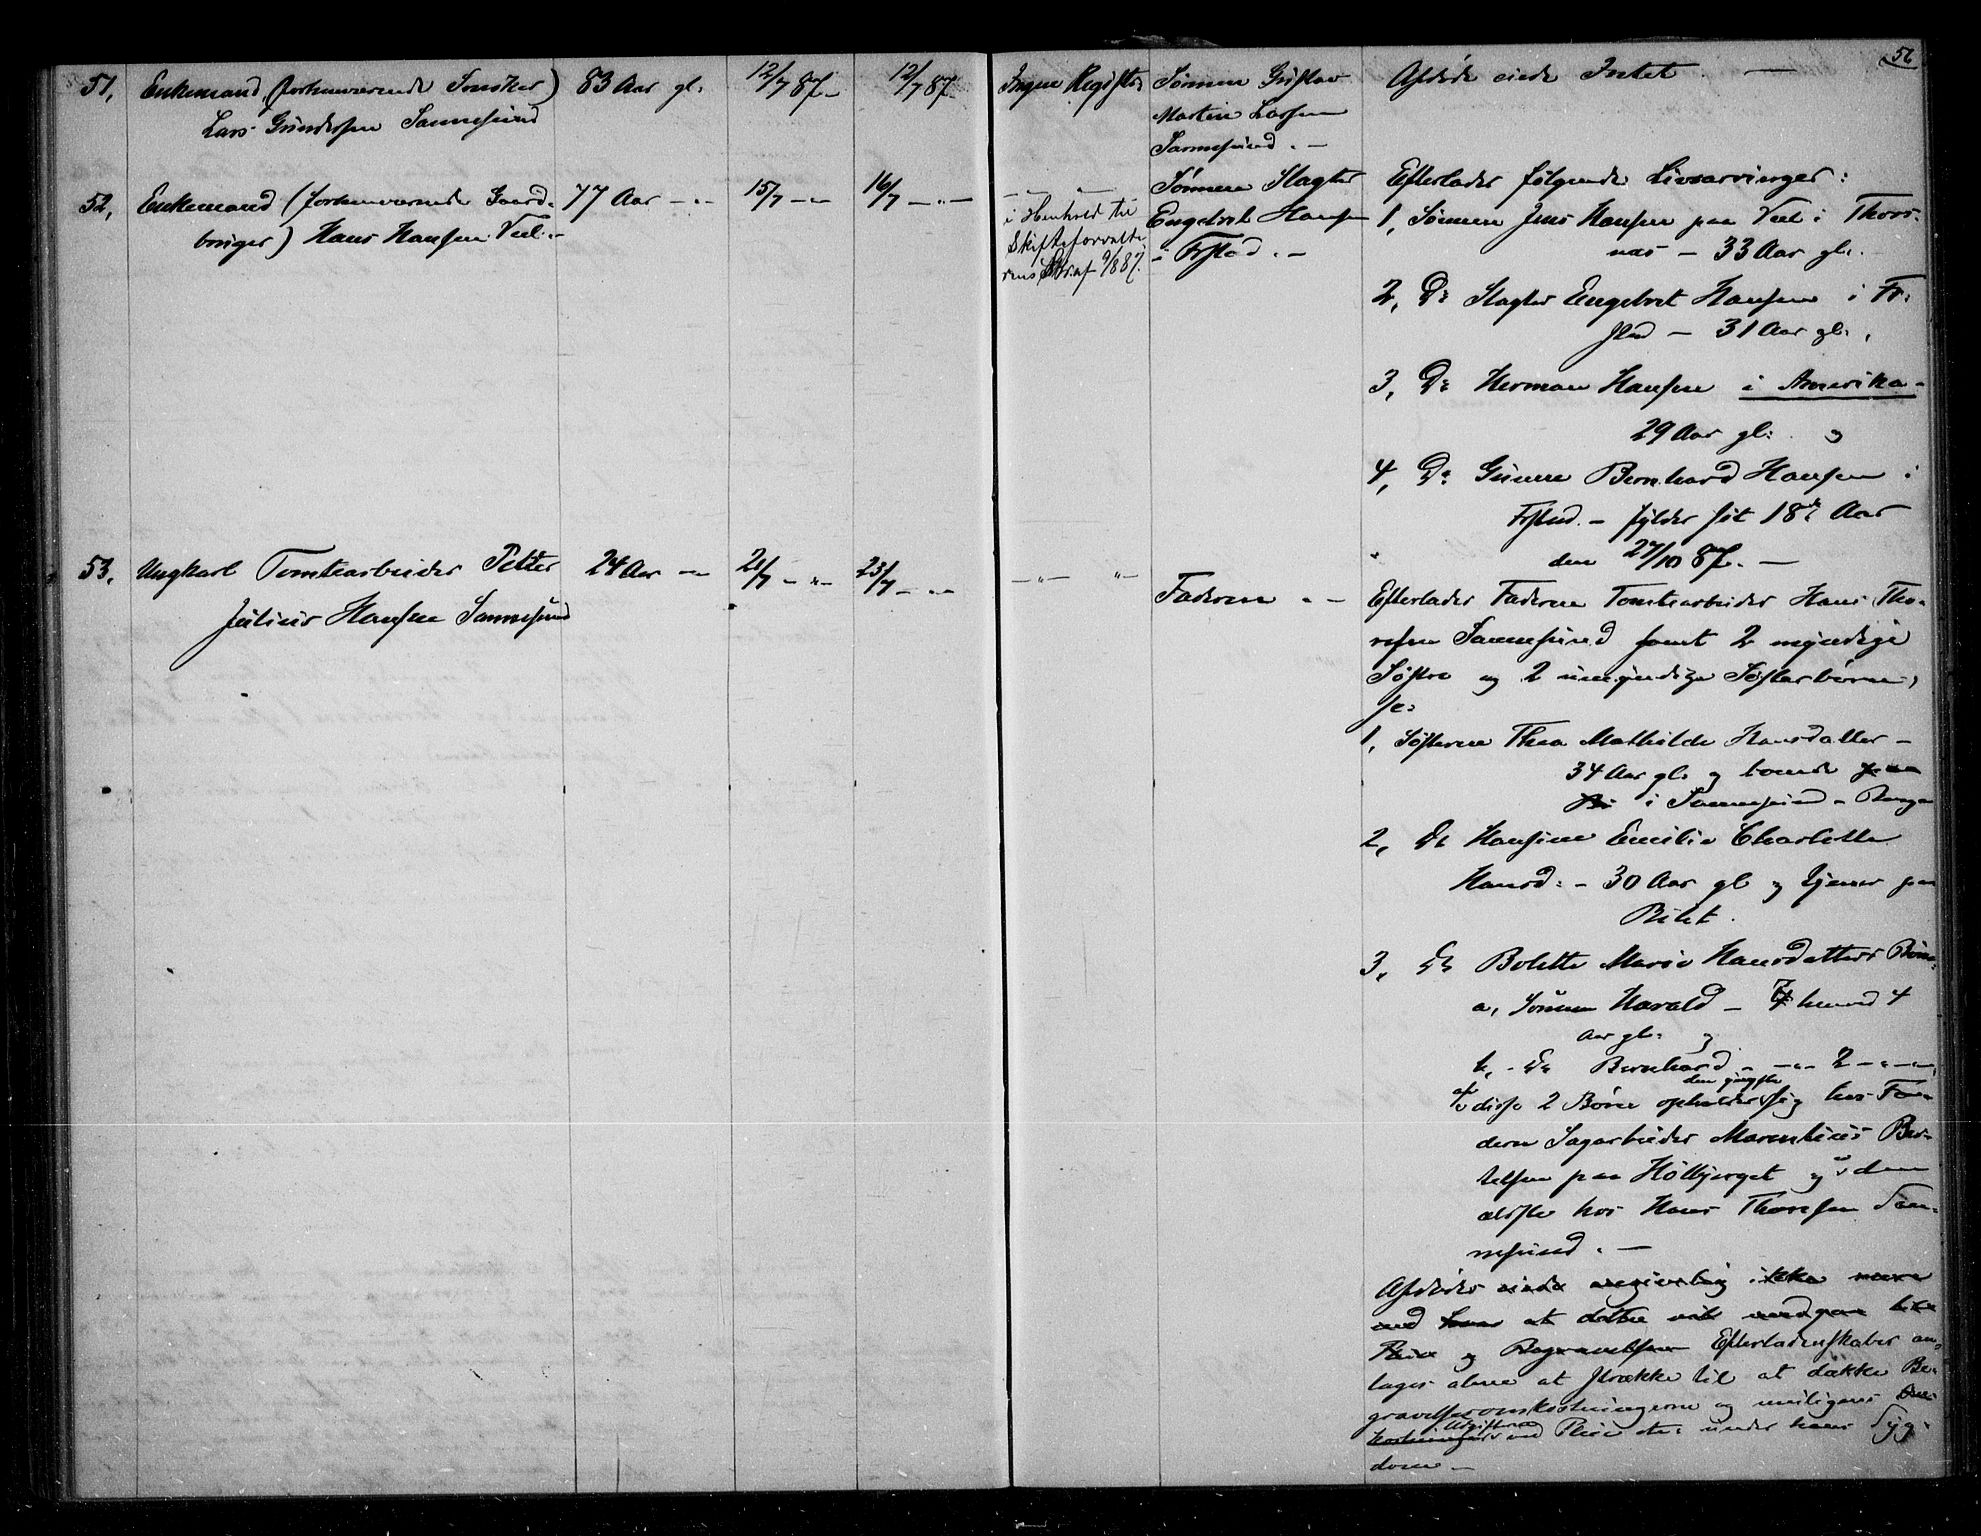 56
51, Enkemand (forhenværende Snedker) 83 Aar gl: 12/7 87 12/7 87 Ingen Registr: Sønnen Gustav Afdøde eiede Intet. —
Lars Gundersen Sannesund
Martin Larsen
Sannesund. —
52, Enkemand (forhenværende Gaard- 77 Aar — 15/7 — 16/7 — " —
bruger) Hans Hansen Veel. —
— " —
i Henhold til
Skifteforvalte
rens Skriv 9/8 87.
Sønnen Slagter
Engebret Hansen
i Frstad. —
Efterlader følgende Livsarvinger:
1, Sønnen Jens Hansen paa Veel i Thors-
næs — 33 Aar gl.
2, Do Slagter Engebret Hansen i Fr:
stad — 31 Aar gl.,
3, Do Herman Hansen i Amerika —
29 Aar gl: og
4, Do Gunne Bernhard Hansen i
Frstad. — fylder sit 18de Aar
den 27/10 87. —
53, Ungkarl Tomtearbeider Petter 24 Aar — 21/7 — " — 23/7 — " — — " — " — Faderen " —
Julius Hansen Sannesund
Efterlader Faderen Tomtearbeider Hans Tho-
resen Sannesund samt 2 myndige
Søstre og 2 umyndige Søsterbørn,
se:
1, Søsteren Thea Mathilde Hansdatter —
34 Aar gl. og boende paa
i Sannesund —
2, Do Hansine Emilie Charlotte
Hansd: — 30 Aar gl og tjener paa
3, Do Bolette Marie Hansdatters Børn:
a, Sønnen Harald — 4
Aar gl. og
b, Do Bernhard — " — 2 — " —
af disse 2 Børn opholder den yngste sig hos Fa-
deren Sagarbeider Marentius Ber-
telsen paa Holbjerget og den
ældste hos Hans Thoresen San-
nesund. —
Afdøde eiede angivelig ikke mere
end at dette vil medgaa til
Pleie og Begravelsen Efterladenskaber an-
tages alene at strække til at dække Be-
gravelsesomkostningerne og muligens
Udgifterne ved Pleie etc: under hans Syg-
dom. —